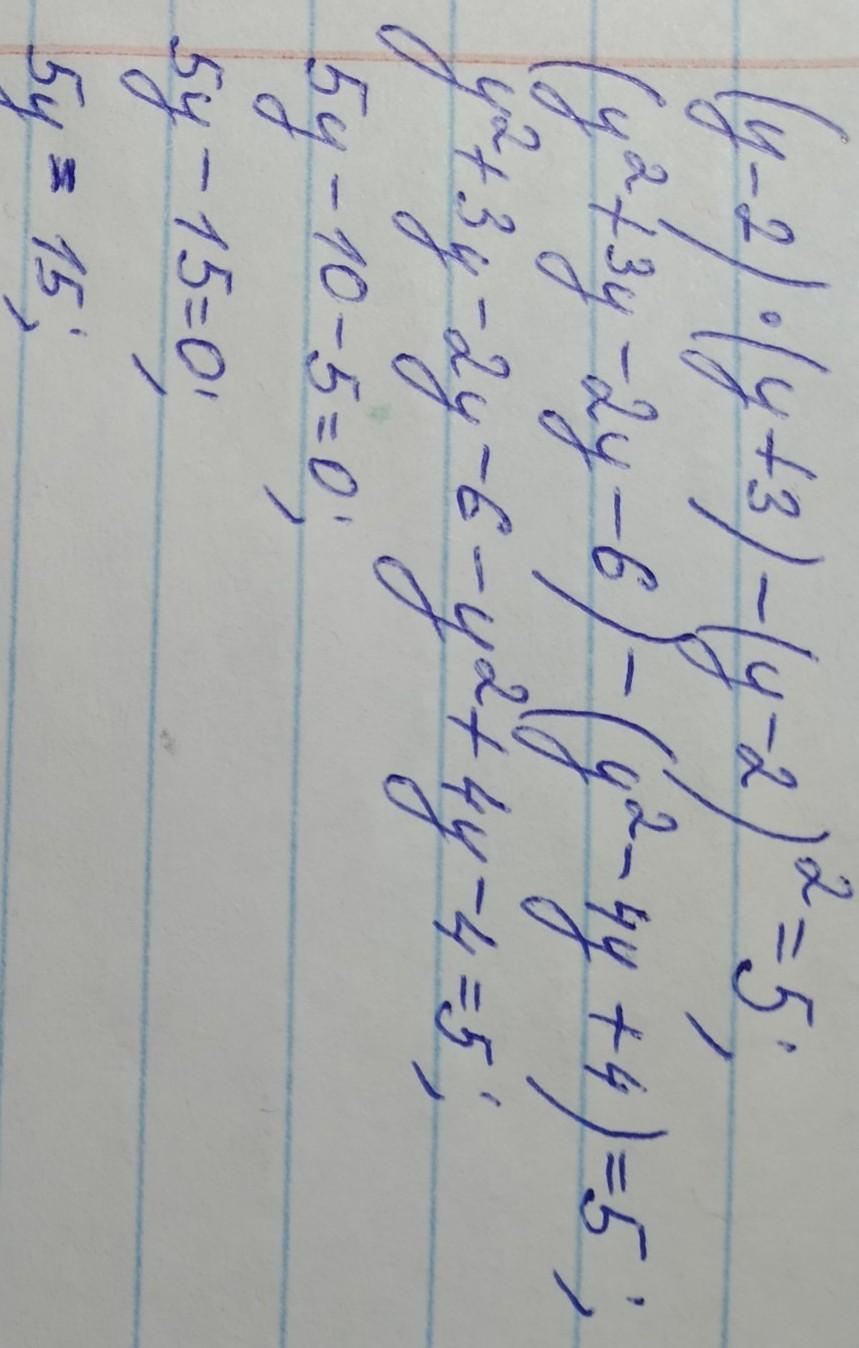 (y-2)·(y+3)-(y-2)²=5;
(y²+3y-2y-6)-(y²-4y+4)=5;
y²+3y-2y-6-y²+4y-4=5;
5y-10-5=0;
5y-15=0;
5y=15;